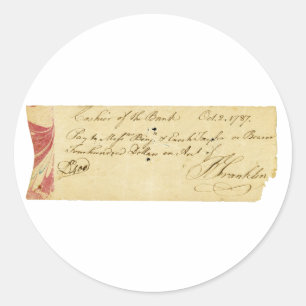 Cashier of the Bank Oct. 2. 1787.
Pay to Messrs Benj. & Enoch Taylor or Bearer
Four hundred Dollars on Acct of
400 B Franklin